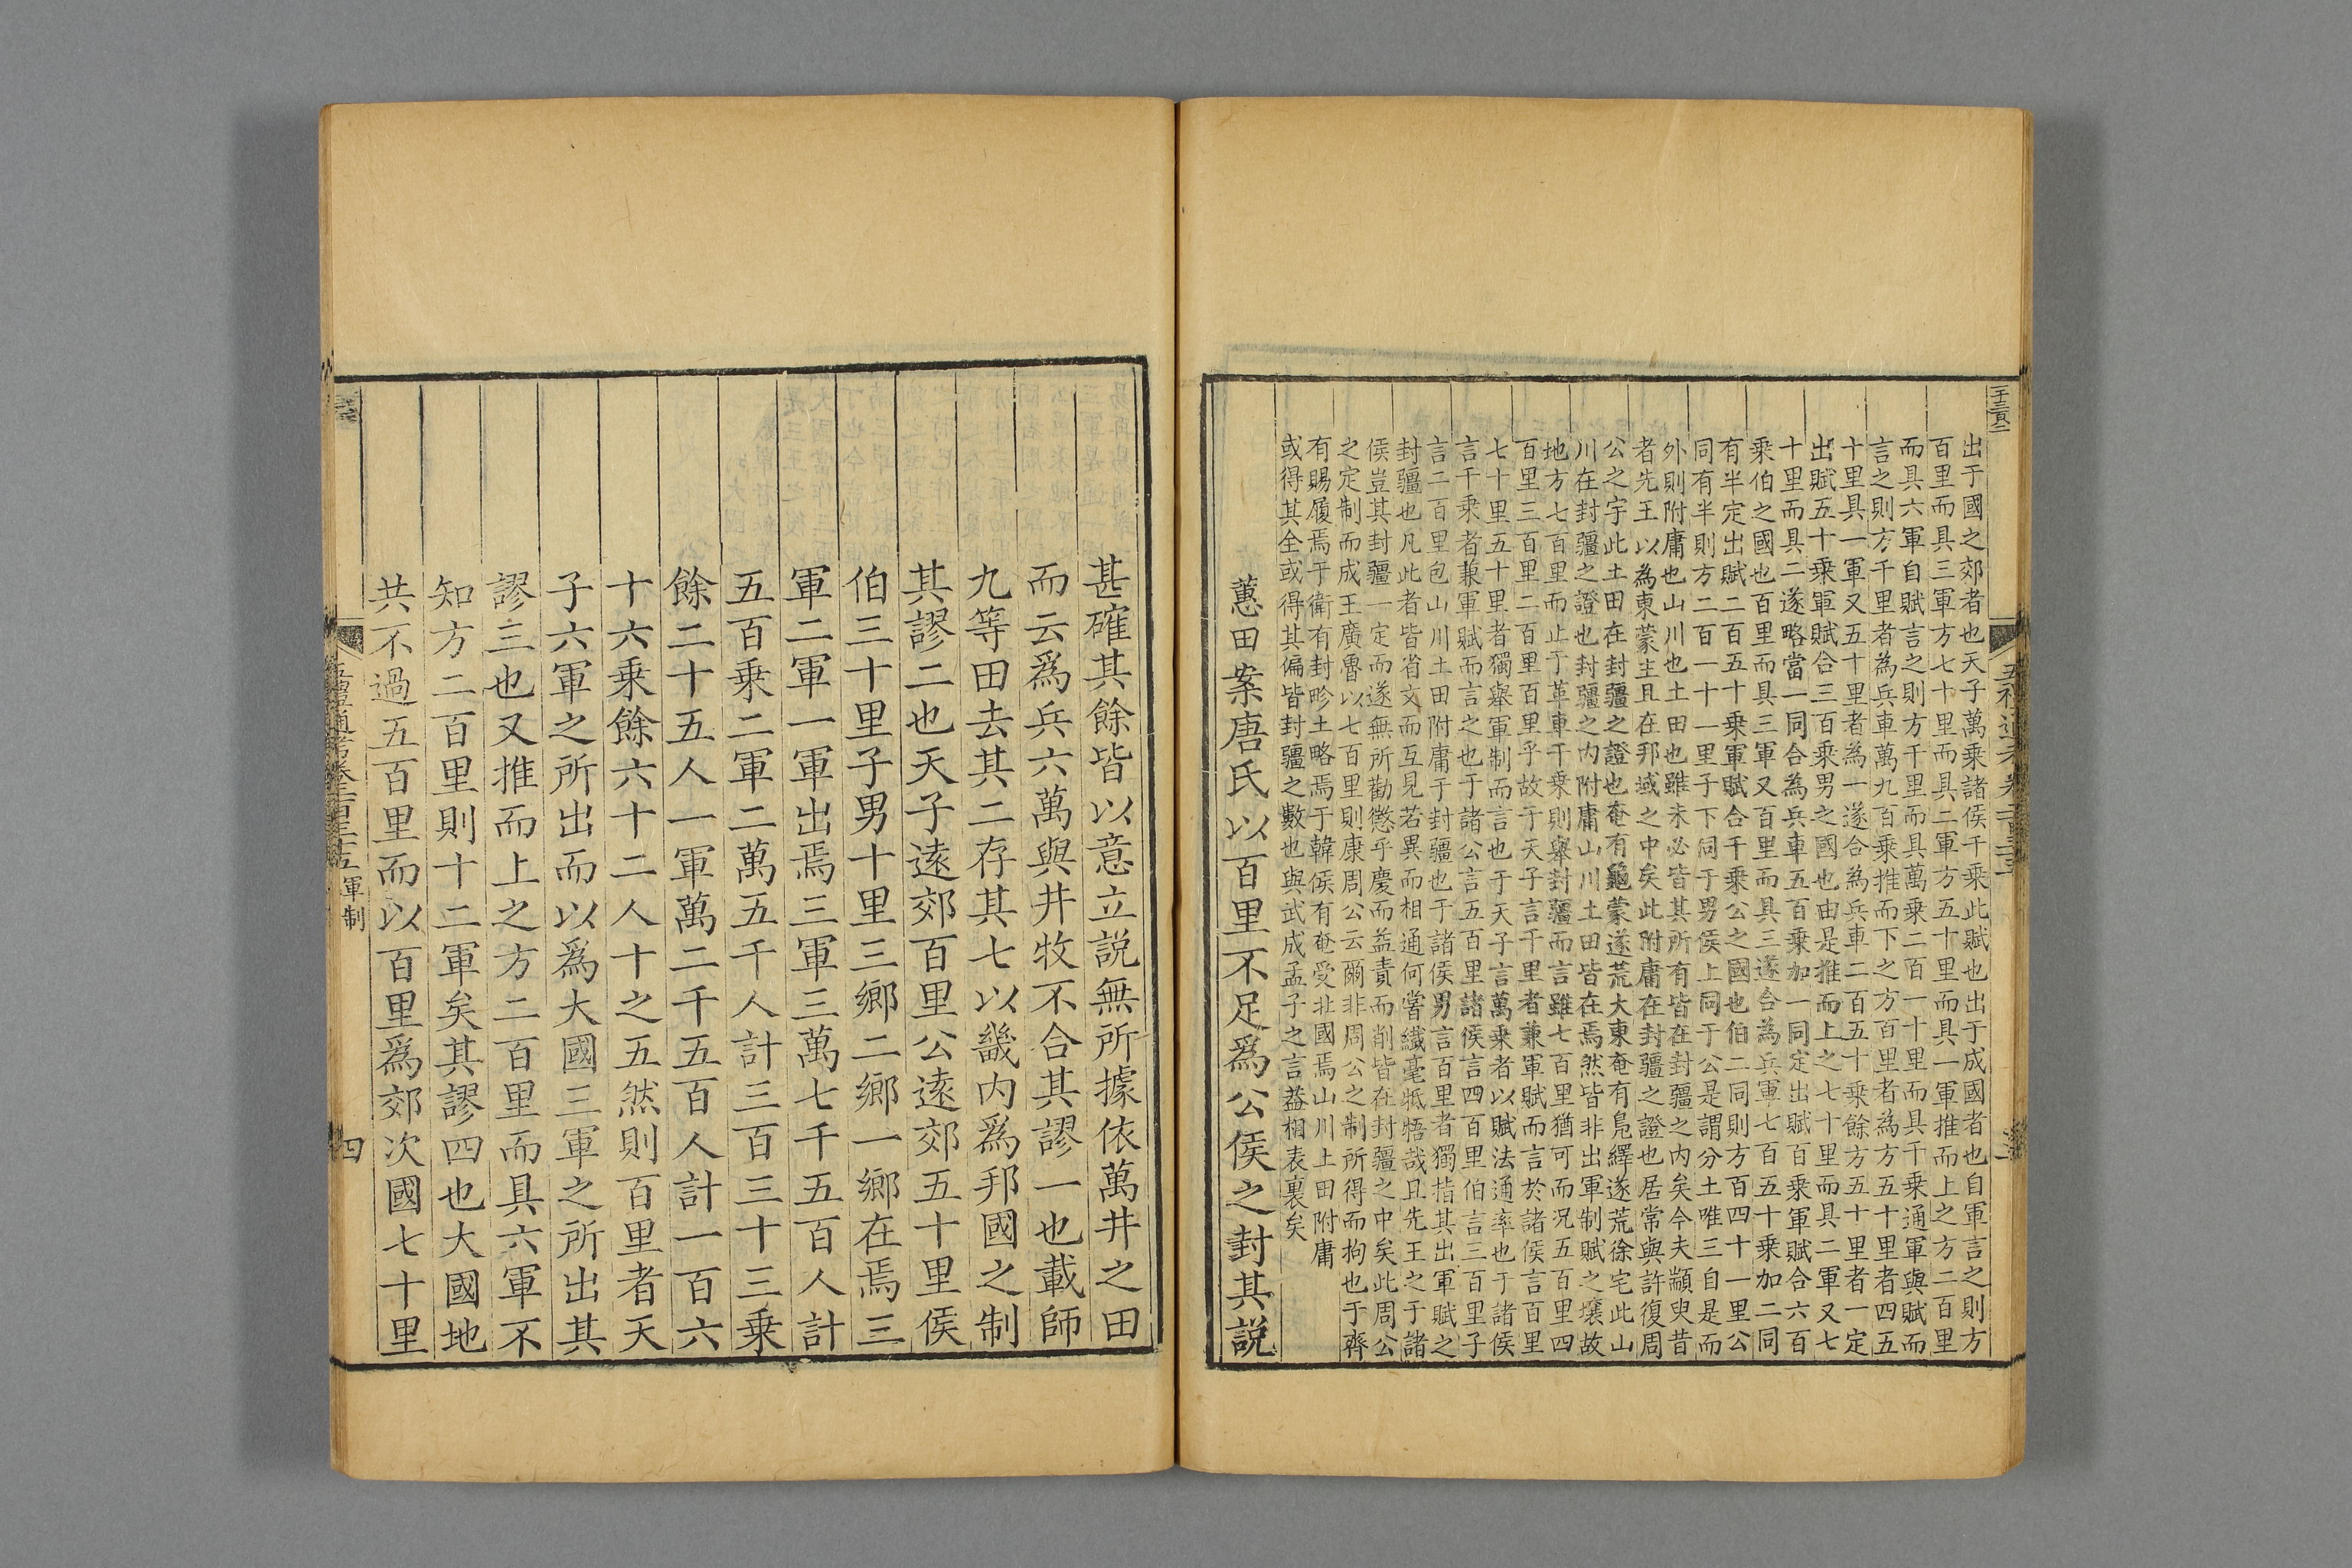 出于國之郊者也天子萬乘諸侯千乘此賦也出于成國者也自軍言之則方
百里而具三軍方七十里而具二軍方五十里而具一軍推而上之方二百里
而具六軍自賦言之則方千里而具萬乘二百一十里而具千乘通軍與賦而
言之則方千里者為兵車萬九百乘推而下之方百里者為方五十里者四五
十里具一軍又五十里者為一遂合為兵車二百五十乘餘方五十里者一定
出賦五十乘軍賦合三百乘男之國也由是推而上之七十里而具二軍又七
十里而具二遂略當一同合為兵車五百乘加一同定出賦百乘軍賦合六百
乘伯之國也百里而具三軍又百里而具三遂合為兵軍七百五十乘加二同
有半定出賦二百五十乘軍賦合千乘公之國也伯二同則方百四十一里公
同有半則方二百一十一里子下同于男侯上同于公是謂分土唯三自是而
外則附庸也山川也土田也雖未必皆其所有皆在封疆之内矣今夫顓臾昔
者先王以為東蒙主且在邦域之中矣此附庸在封疆之證也居常與許復周
公之宇此土田在封疆之證也奄有龜蒙遂荒大東奄有鳧繹遂荒徐宅此山
川在封疆之證也封疆之内附庸山川土田皆在焉然皆非出軍制賦之壤故
地方七百里而止于革車千乘則舉封疆而言雖七百里猶可而況五百里四
百里三百里二百里百里乎故于天子言千里者兼軍賦而言於諸侯言百里
七十里五十里者獨舉軍制而言也于天子言萬乘者以賦法通率也于諸侯
言千乘者兼軍賦而言之也于諸公言五百里諸侯言四百里伯言三百里子
言二百里包山川土田附庸于封疆也于諸侯男言百里者獨指其出軍賦之
封疆也凡此者皆省文而互見若異而相通何嘗纖毫牴牾哉且先王之于諸
侯豈其封疆一定而遂無所勸懲乎慶而益責而削皆在封疆之中矣此周公
之定制而成王廣魯以七百里則康周公云爾非周公之制所得而拘也于齊
有賜履焉于衛有封畛土略焉于韓侯有奄受北國焉山川土田附庸
或得其全或得其偏皆封疆之數也與武成孟子之言葢相表裏矣
蕙田案唐氏以百里不足爲公侯之封其説
甚確其餘皆以意立説無所據依萬井之田
而云爲兵六萬與井牧不合其謬一也載師
九等田去其二存其七以畿内爲邦國之制
其謬二也天子遠郊百里公遠郊五十里侯
伯三十里子男十里三鄉二鄉一鄉在焉三
軍二軍一軍出焉三軍三萬七千五百人計
五百乘二軍二萬五千人計三百三十三乘
餘二十五人一軍萬二千五百人計一百六
十六乘餘六十二人十之五然則百里者天
子六軍之所出而以爲大國三軍之所出其
謬三也又推而上之方二百里而具六軍不
知方二百里則十二軍矣其謬四也大國地
共不過五百里而以百里爲郊次國七十里
五禮通考卷二百三十五 軍制 四